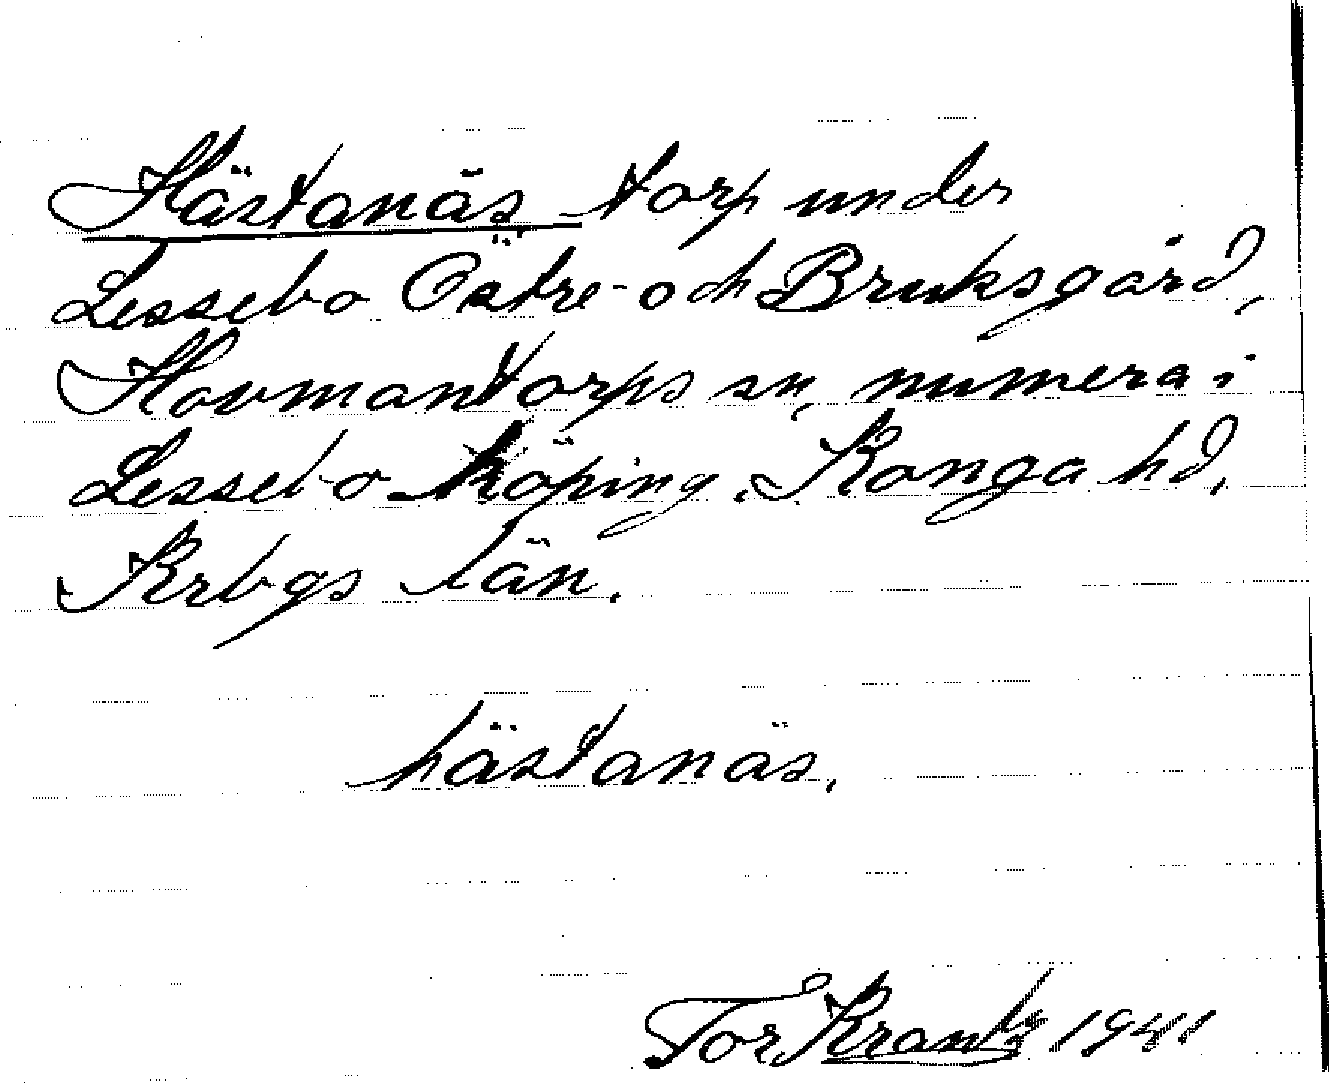 Hästanäs torp under
Lessebo Östre- och Bruksgård,
Hovmantorps sn, numera i
Lessebo köping. Konga hd,
Krbgs län.
hästanäs.
Tor Krantz 1941